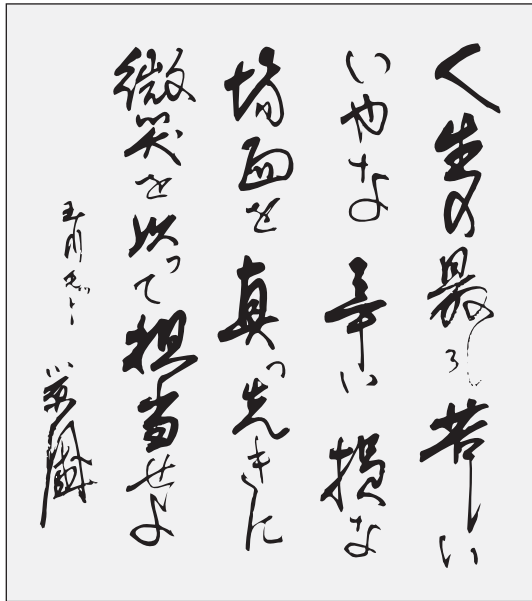 人生の最も苦しい
いやな 辛い 損な
場面を 真っ先きに
微笑を以って担当せよ
玉川
小原國